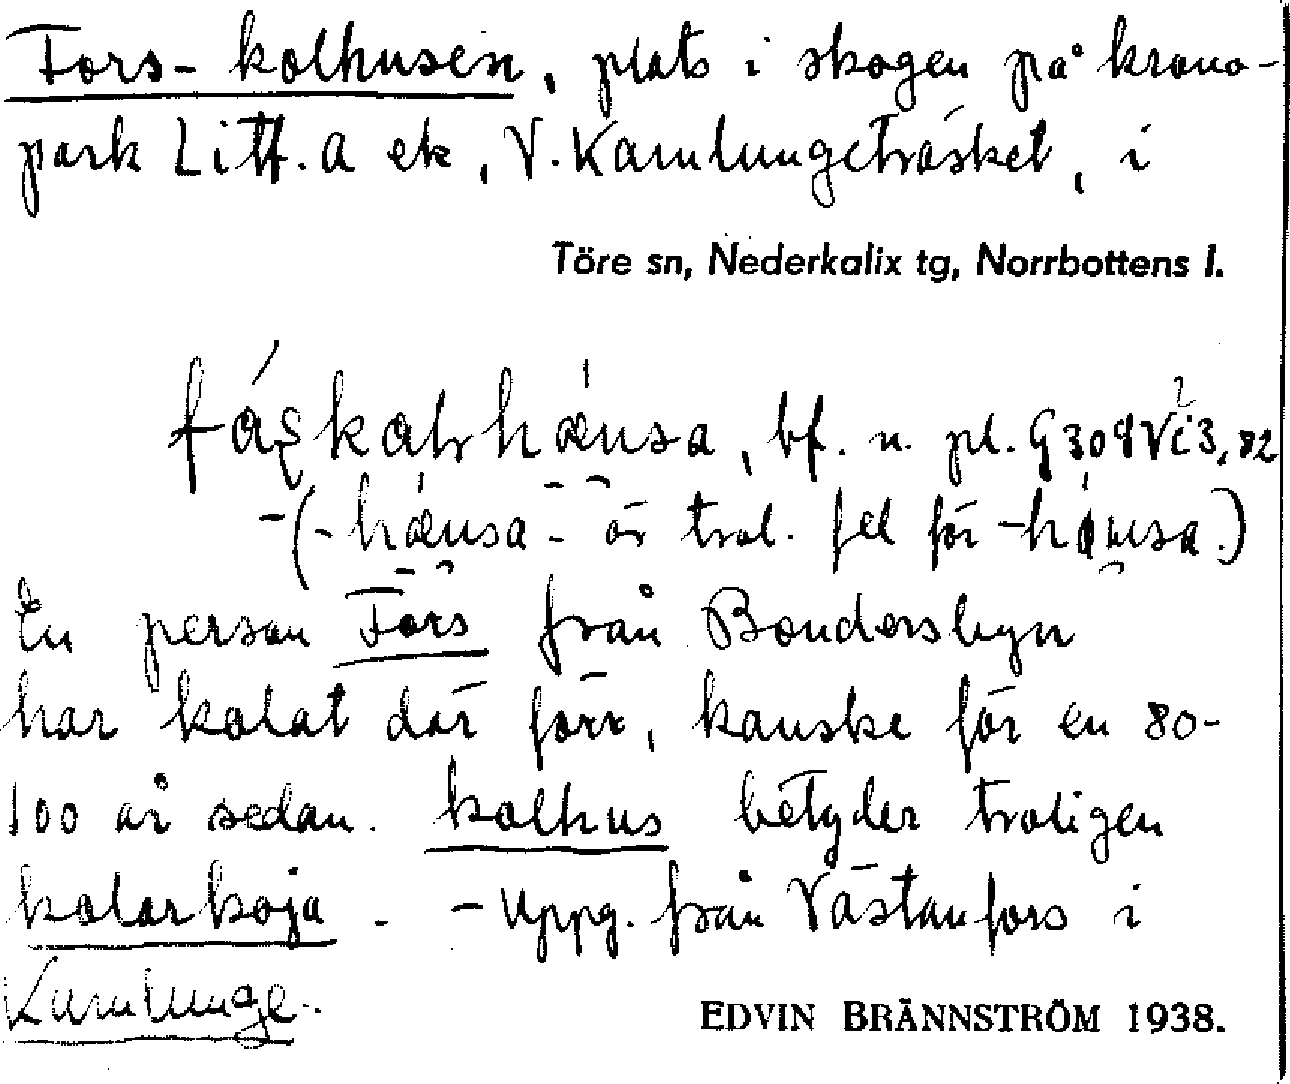 Fors-kolhusen, plats i skogen på krono-
park Litt. A ek, V. Kamlungeträsket, i
Töre sn, Nederkalix tg, Norrbottens l.
bf. n. pl.
är trol. fel för
En person Fors från Bondersbyn
har kolat där förr, kanske för en 80-
100 år sedan. kolhus betyder troligen
kolarkoja. - Uppg. från Västanfors i
Kamlunge.
EDVIN BRÄNNSTRÖM 1938.